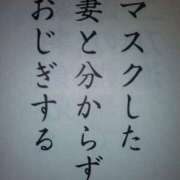 マスクした
妻と分からず
おじぎする